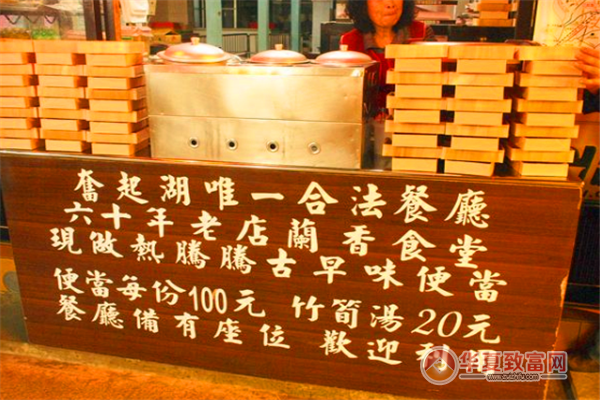 奮起湖唯一合法餐廳
六十年老店蘭香食堂
現做熱騰騰古早味便當
便當每份100元 竹筍湯20元
餐廳備有座位 歡迎利
华夏致富网